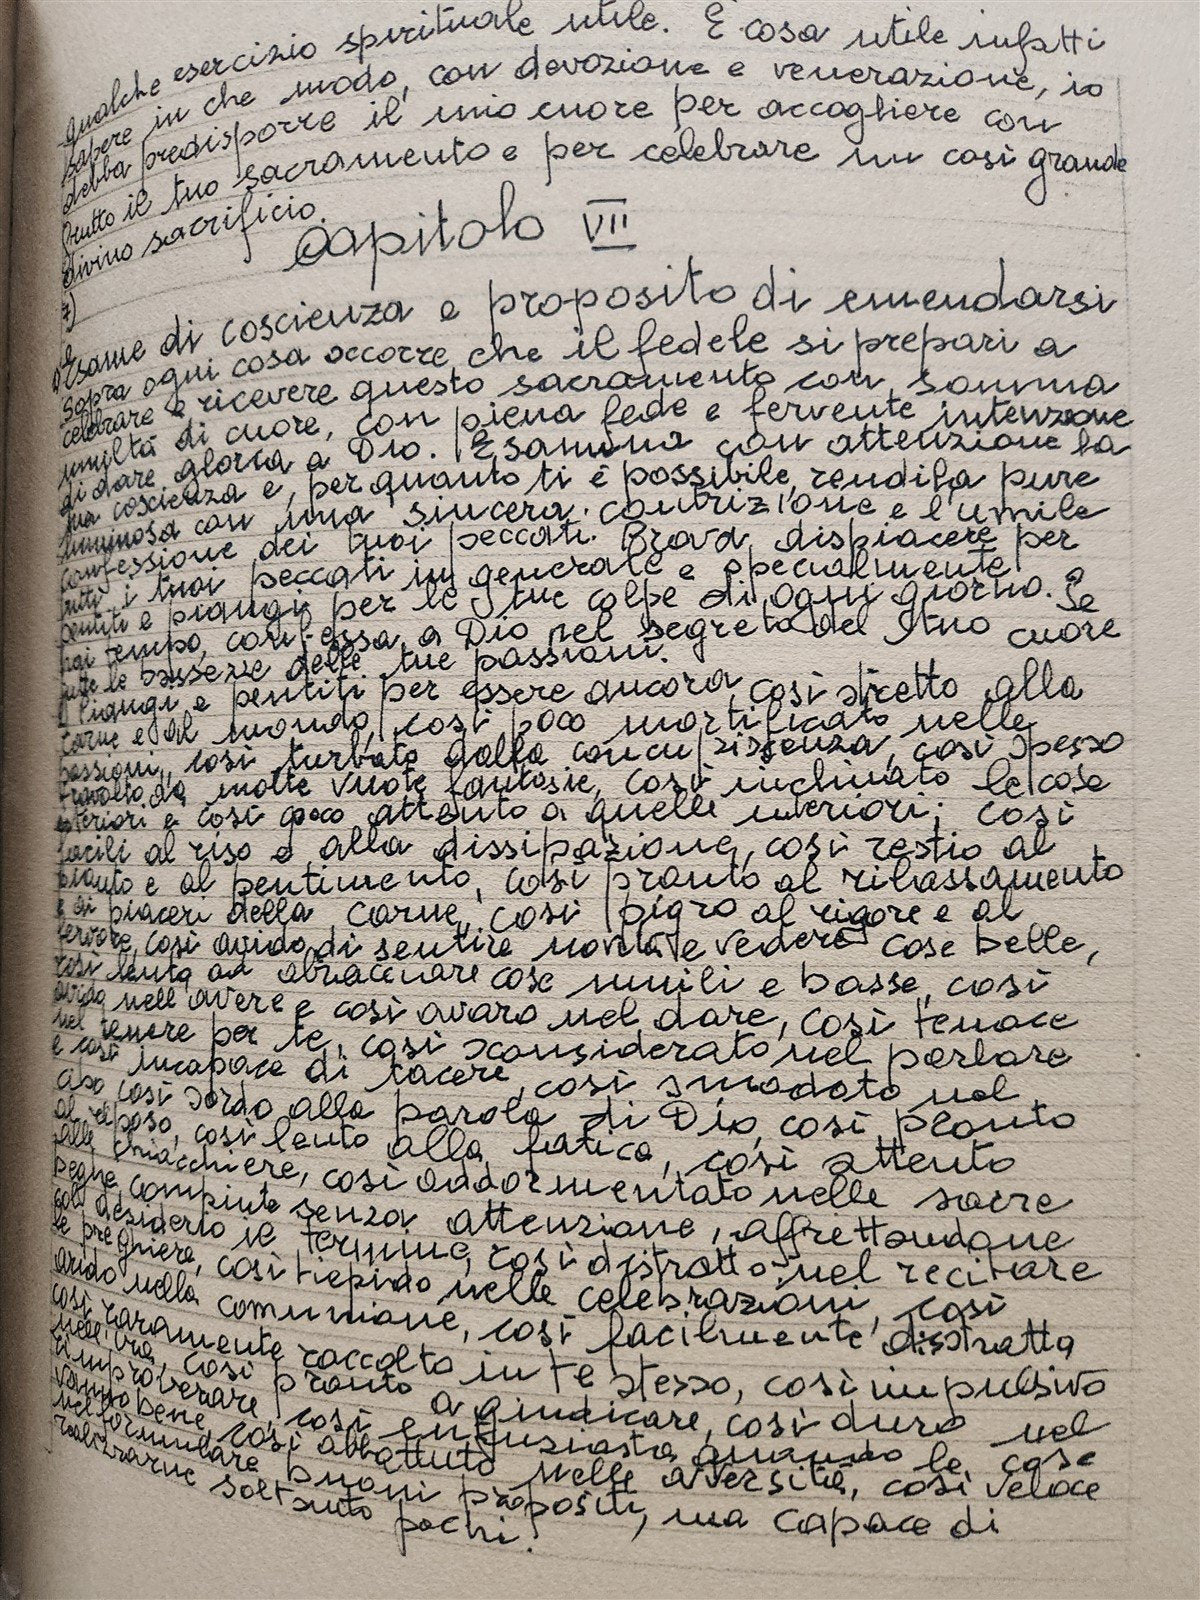 qualche esercizio spirituale utile. È cosa utile infatti
sapere in che modo, con devozione e venerazione, io
debba predisporre il mio cuore per accogliere con
frutto il tuo sacramento e per celebrare un così grande
divino sacrificio.
Capitolo VII
7)
Esame di coscienza e proposito di emendarsi
1) Sopra ogni cosa occorre che il fedele si prepari a
celebrare e ricevere questo sacramento con somma
umiltà di cuore, con piena fede e fervente intenzione
di dare gloria a Dio. Esamina con attenzione la
tua coscienza e, per quanto ti è possibile, rendila pure
luminosa con una sincera contrizione e l'umile
confessione dei tuoi peccati. Prova dispiacere per
tutti i tuoi peccati in generale e specialmente
pentiti e piangi per le tue colpe di ogni giorno. Se
hai tempo, confessa a Dio nel segreto del tuo cuore
tutte le bassezze delle tue passioni.
Piangi e pentiti per essere ancora così stretto alla
carne e al mondo, così poco mortificato nelle
passioni, così turbato dalla concupiscenza, così spesso
travolto da molte vuote fantasie, così inchinato le cose
esteriori e così poco attento a quelle interiori; così
facili al riso e alla dissipazione, così restio al
pianto e al pentimento, così pronto al rilassamento
e ai piaceri della carne, così pigro al rigore e al
fervore, così avido di sentire novità e vedere cose belle,
così lento ad abbracciare cose umili e basse, così
avido nell'avere e così avaro nel dare, così tenace
nel tenere per te, così sconsiderato nel parlare
e così incapace di tacere, così smodato nel
cibo così sordo alla parola di Dio, così pronto
al riposo, così lento alla fatica, così attento
alle chiacchiere, così addormentato nelle sacre
veglie compiute senza attenzione, affrettandone
col desiderio il termine, così distratto nel recitare
le preghiere, così tiepido nelle celebrazioni, così
arido nella comunione, così facilmente distratta
così raramente raccolto in te stesso, così impulsivo
nell'ira, così pronto a giudicare, così duro nel
rimproverare, così entusiasta quando le cose
vanno bene così abbattuto nelle avversità, così veloce
nel formulare buoni propositi, ma capace di
realizzarne soltanto pochi.